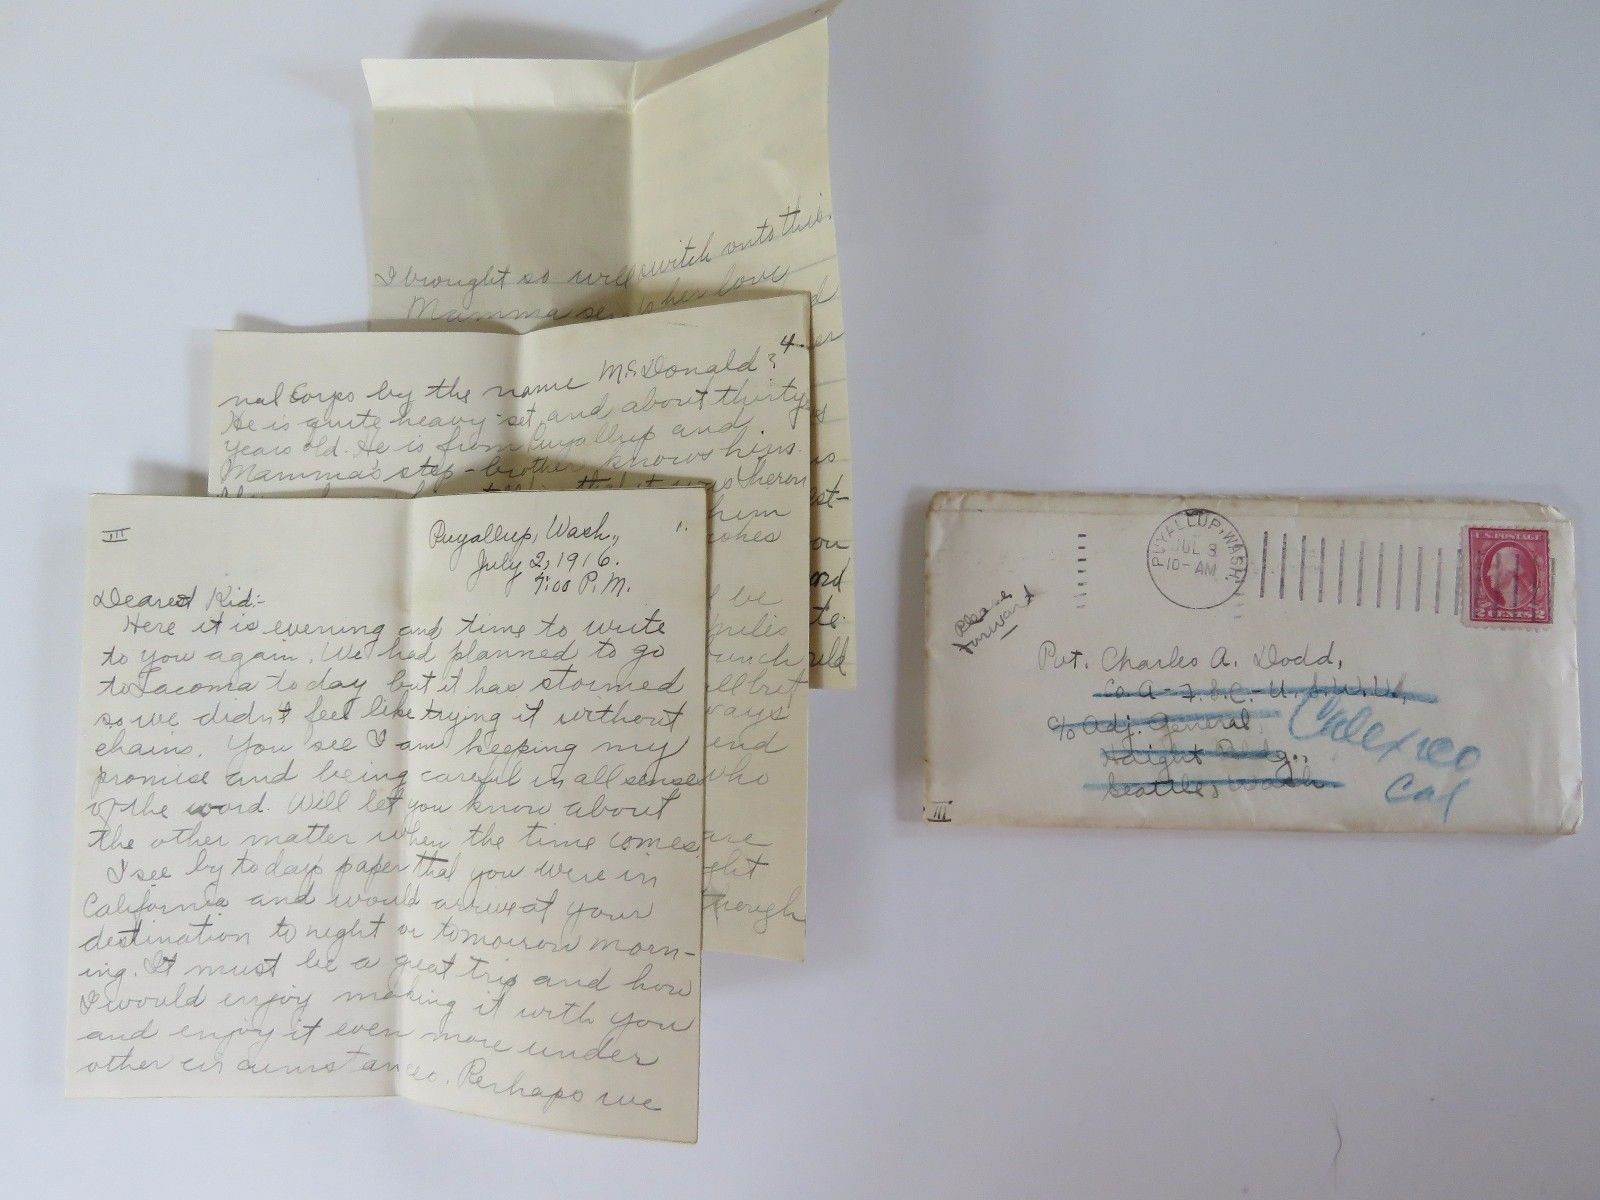 I brought so will switch onto this.
Mamma sends her love
4.
nal Corps by the name McDonald?
He is quite heavy-set and about thirty
years old. He is from Puyallup and
Mamma's step-brother knows him.
him
be
miles
unch
all but
ways
and
who
are
ght
through
III
1.
Puyallup, Wash.,
July 2, 1916.
7:00 P.M.
Dearest Kid:-
Here it is evening and time to write
to you again. We had planned to go
to Tacoma today but it has stormed
so we didn't feel like trying it without
chains. You see I am keeping my
promise and being careful in all senses
of the word. Will let you know about
the other matter when the time comes.
I see by todays paper that you were in
California and would arrive at your
destination tonight or tomorrow morn-
ing. It must be a great trip and how
I would enjoy making it with you
and enjoy it even more under
other circumstances. Perhaps we
PUYALLUP, WASH.
JUL 3
10-AM
U.S. POSTAGE
2 CENTS 2
Please
forward
Pvt. Charles A. Dodd,
Co. A-F.S.C.-U.S.W.V.,
c/o Adj. General,
Haight Bldg.,
Seattle, Wash.
Calexico
Cal
III